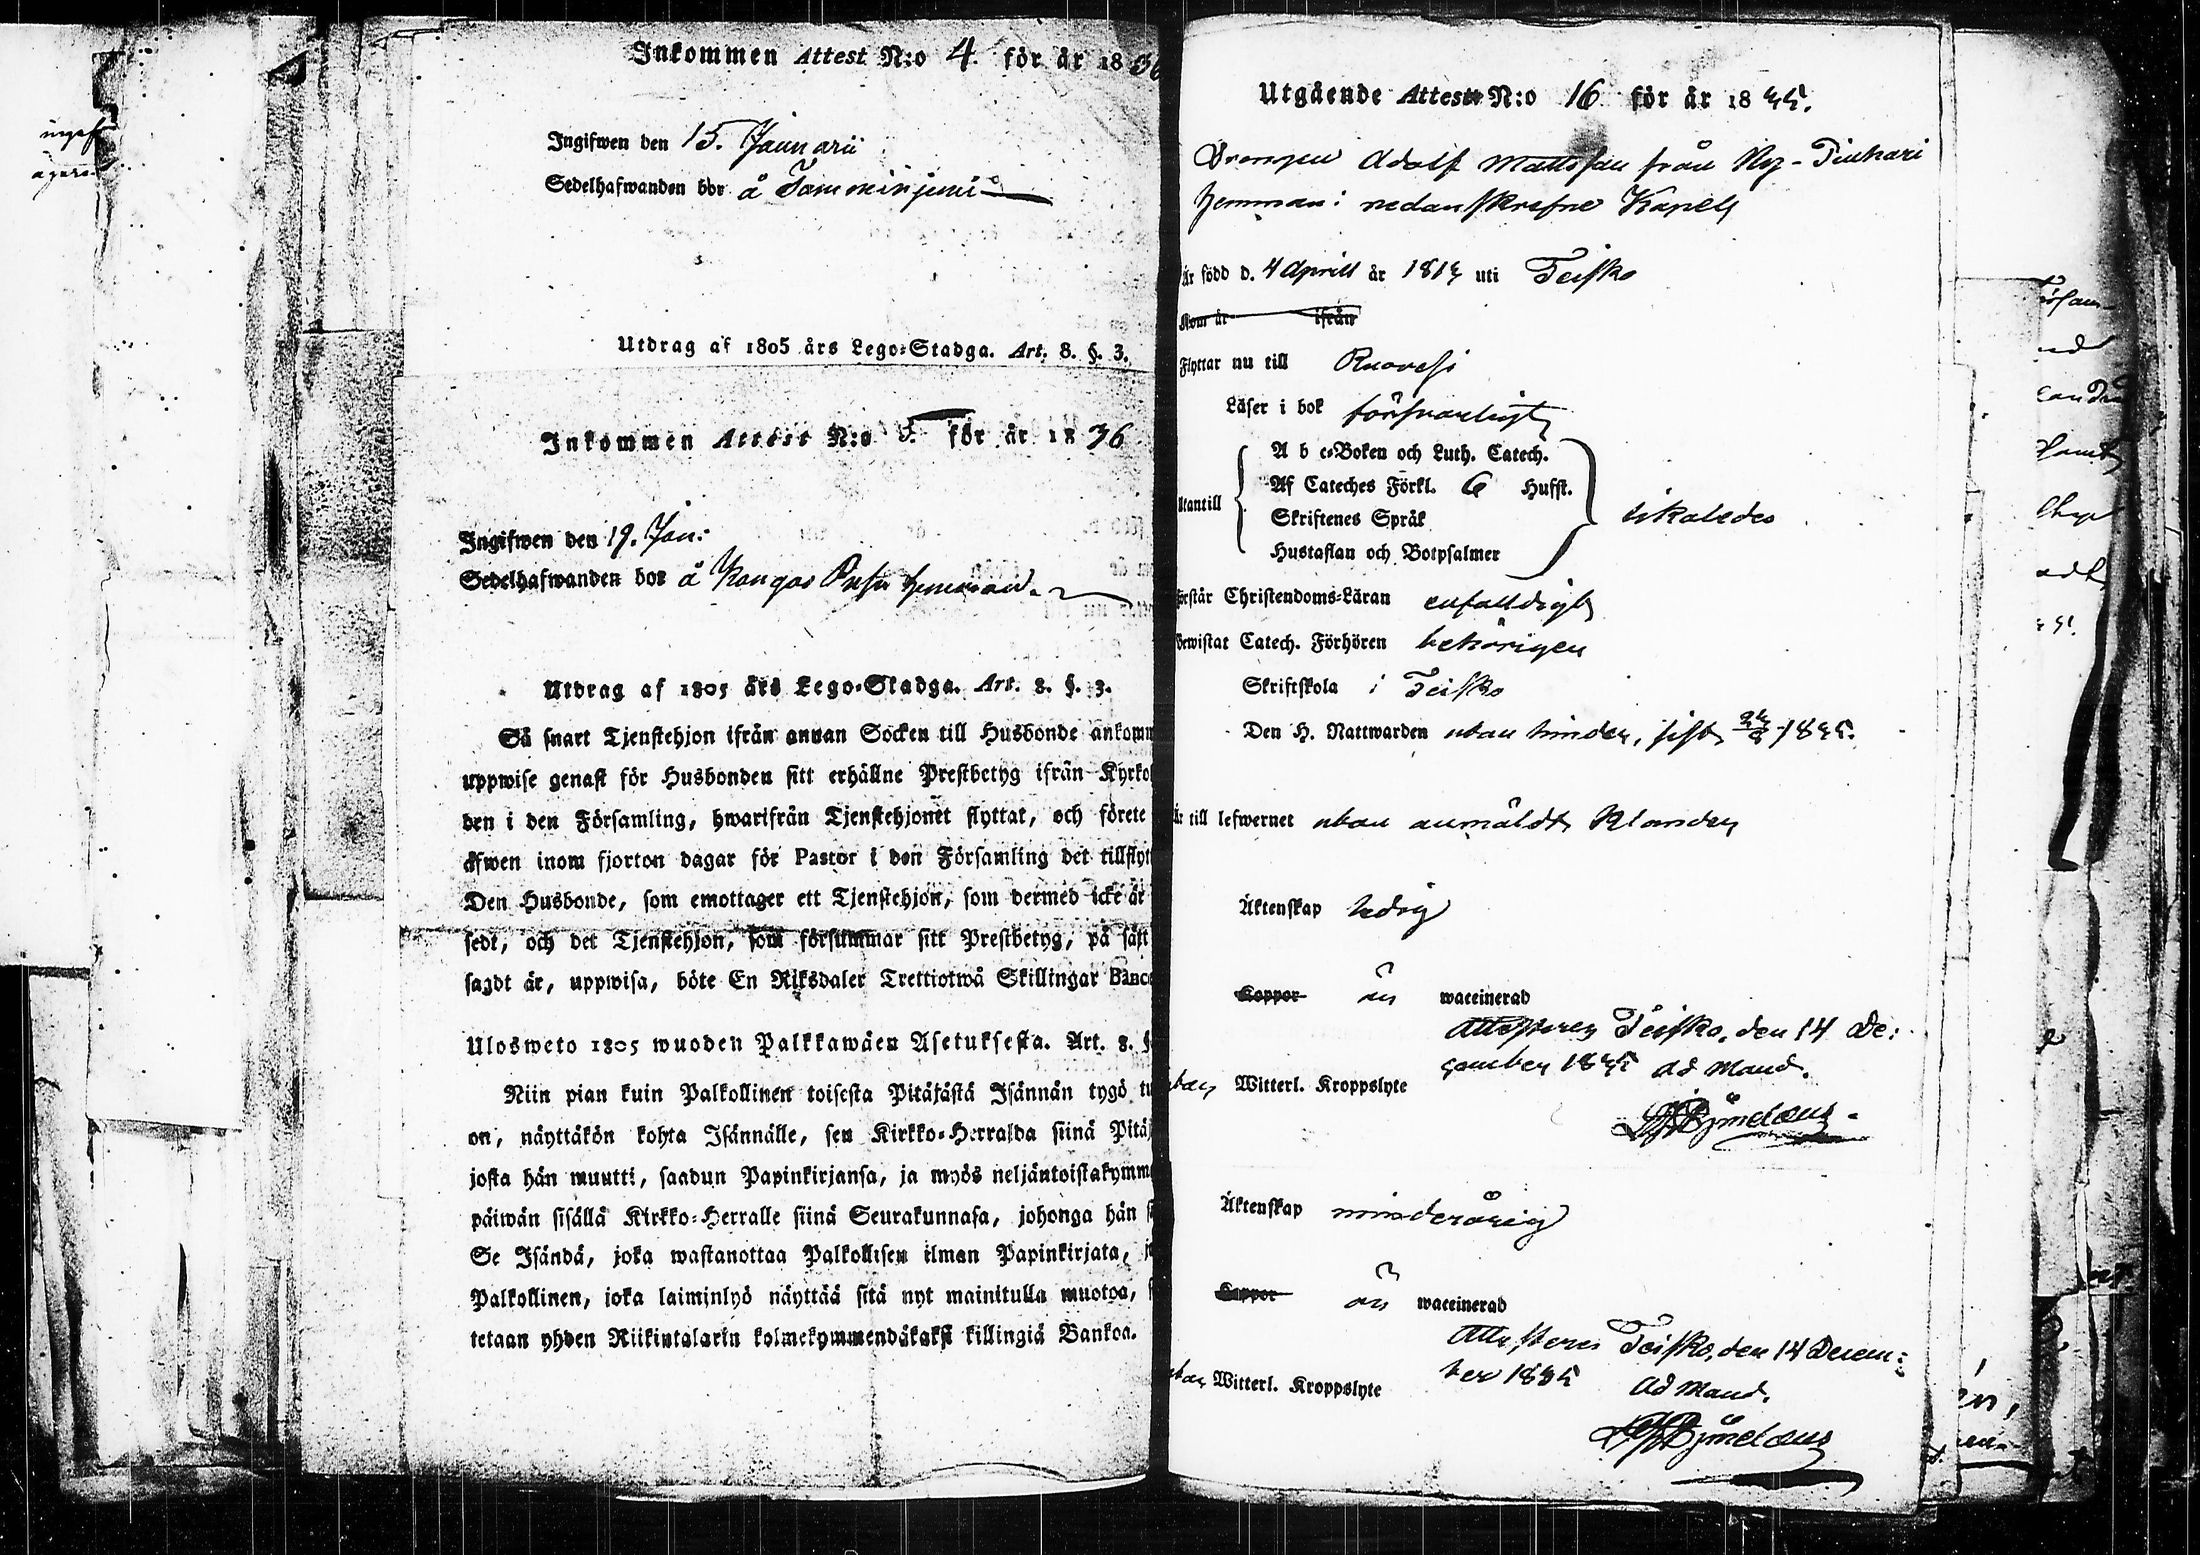 Inkommen Attest N:o 4. för år 1836
Ingifwen den 15. Januarii
Sedelhafwanden bor å Tamminjemi
Utdrag af 1805 års Lego-Stadga. Art. 8. §. 3.
Inkommen Attest N:o 5. för år 1836
Ingifwen den 19. Jan:
Sedelhafwanden bor å Kangas hemman.
Utdrag af 1805 års Lego-Stadga. Art. 8. §. 3.
Så snart Tjenstehjon ifrån annan Socken till Husbonde ankomm
uppwise genast för Husbonden sitt erhållne Prestbetyg ifrån Kyrko
den i den Församling, hwarifrån Tjenstehjonet flyttat, och förete
äfwen inom fjorton dagar för Pastor i den Församling det tillflytt
Den Husbonde, som emottager ett Tjenstehjon, som dermed icke är
sedt, och det Tjenstehjon, som försummar sitt Prestbetyg, på sätt
sagdt är, uppwisa, böte En Riksdaler Trettiotwå Skillingar Banco
Ulosweto 1805 wuoden Palkkawäen Asetuksesta. Art. 8. §
Niin pian kuin Palkollinen toisesta Pitäjästä Isännän tygö tu
on, näyttäkön kohta Isännälle, sen Kirkko-Herralda siinä Pitäj
josta hän muutti, saadun Papinkirjansa, ja myös neljäntoistakymme
päiwän sisällä Kirkko-Herralle siinä Seurakunnasa, johonga hän s
Se Isändä, joka wastanottaa Palkollisen ilman Papinkirjata, j
Palkollinen, joka laiminlyö näyttää sitä nyt mainitulla muotoa, s
tetaan yhden Riikintalarin kolmekymmendäkaksi killingiä Bankoa.
Utgående Attest N:o 16 för år 1835.
Drengen Adolf Mattsson från Ny-Pinhari
hemman i nedanskrefne Kapell
Är född d. 4 Aprill år 1813 uti Teisko
Kom år ifrån
Flyttar nu till Ruovesi
Läser i bok försvarligt
A b c-Boken och Luth. Catech.
Af Cateches Förkl. 6 Hufst.
Utantill
Skriftenes Språk likaledes
Hustaflan och Botpsalmer
Förstår Christendoms-Läran enfalldigt
Bewistat Catech. Förhören behörigen
Skriftskola i Teisko
Den H. Nattwarden utan hinder, sist 1835.
Är till lefwernet utan anmäldt Klander
Äktenskap ledig
Koppor är waccinerad
Attesterer Teisko, den 14 De:
cember 1835 ad Mand.
utan Witterl. Kroppslyte
Äktenskap minderårig
Koppor är waccinerad
Attesteres Teisko, den 14 Decem:
ber 1835
utan Witterl. Kroppslyte
ad Mand.